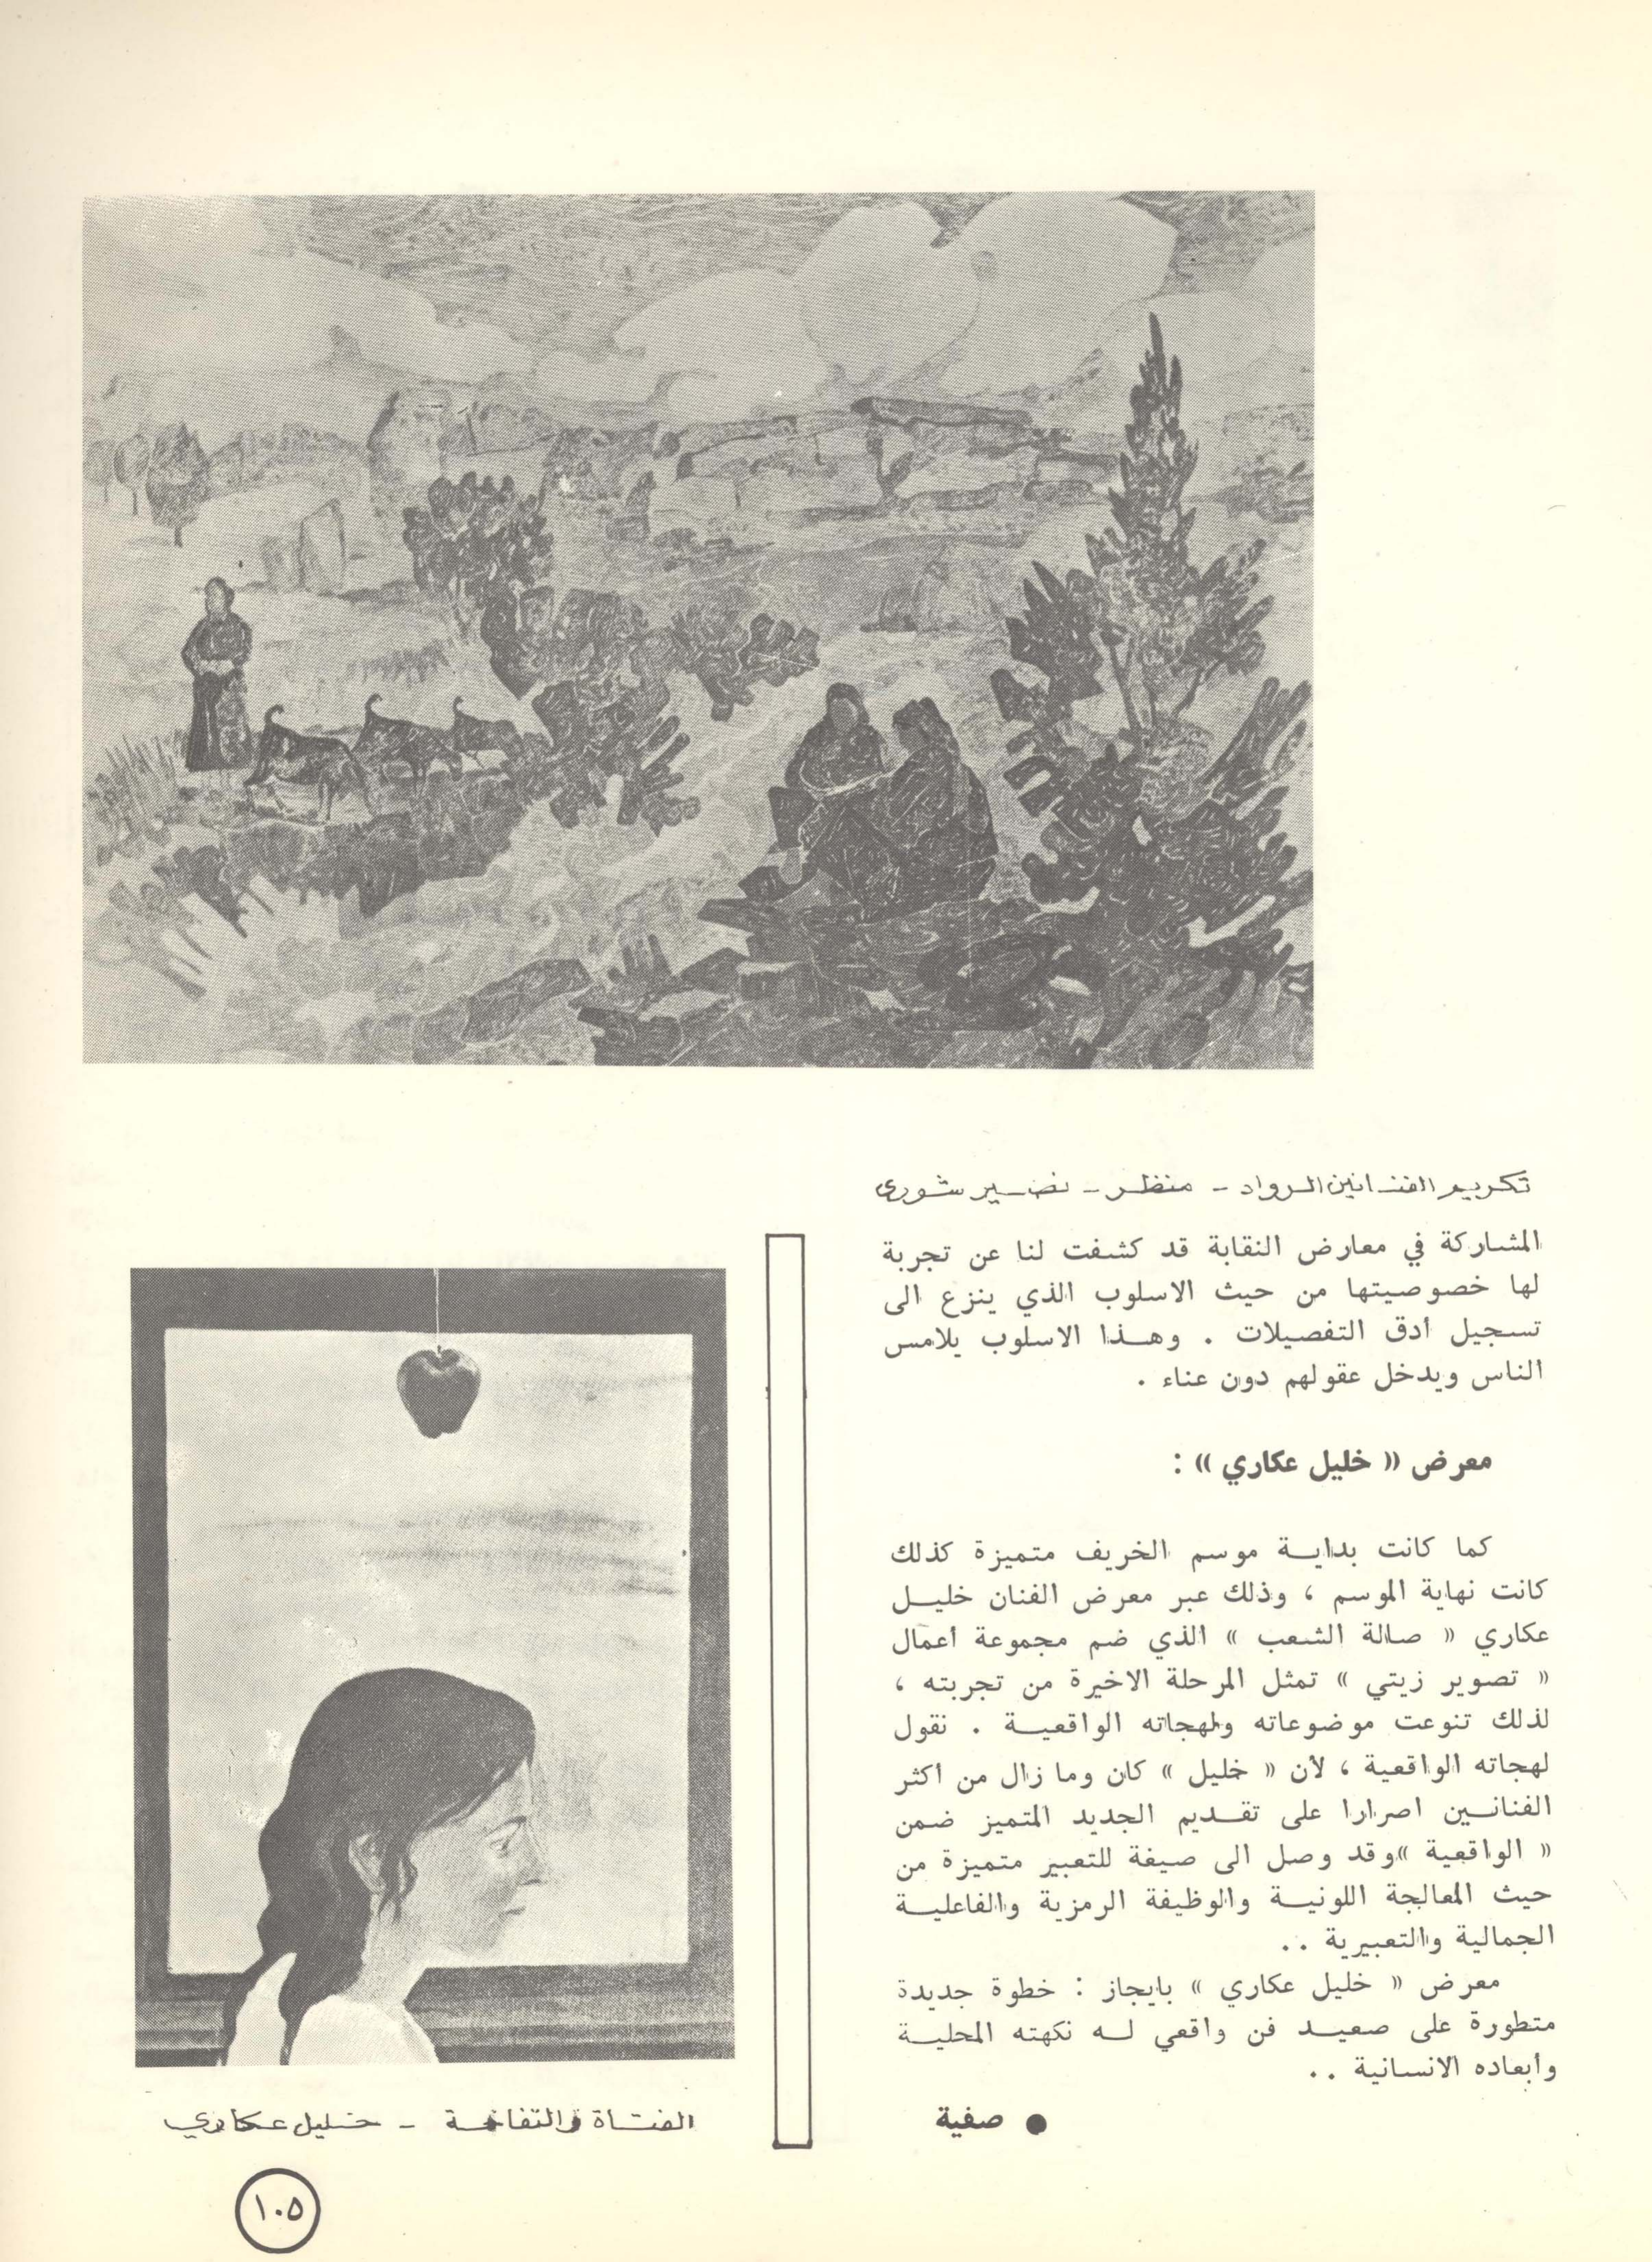 تكريم الفنانين الرواد - منظر - نصير شورى
المشاركة في معارض النقابة قد كشفت لنا عن تجربة
لها خصوصيتها من حيث الاسلوب الذي ينزع الى
تسجيل أدق التفصيلات . وهذا الاسلوب يلامس
الناس ويدخل عقولهم دون عناء .
معرض « خليل عكاري » :
كما كانت بداية موسم الخريف متميزة كذلك
كانت نهاية الموسم ، وذلك عبر معرض الفنان خليل
عكاري « صالة الشعب » الذي ضم مجموعة أعمال
« تصوير زيتي » تمثل المرحلة الاخيرة من تجربته ،
لذلك تنوعت موضوعاته ولهجاته الواقعية . نقول
لهجاته الواقعية ، لأن « خليل » كان وما زال من أكثر
الفنانين اصرارا على تقديم الجديد المتميز ضمن
« الواقعية » وقد وصل الى صيغة للتعبير متميزة من
حيث المعالجة اللونية والوظيفة الرمزية والفاعلية
الجمالية والتعبيرية ..
معرض « خليل عكاري » بايجاز : خطوة جديدة
متطورة على صعيد فن واقعي له نكهته المحلية
وأبعاده الانسانية ..
● صفية
الفتاة والتفاحة - خليل عكاري
١٠٥